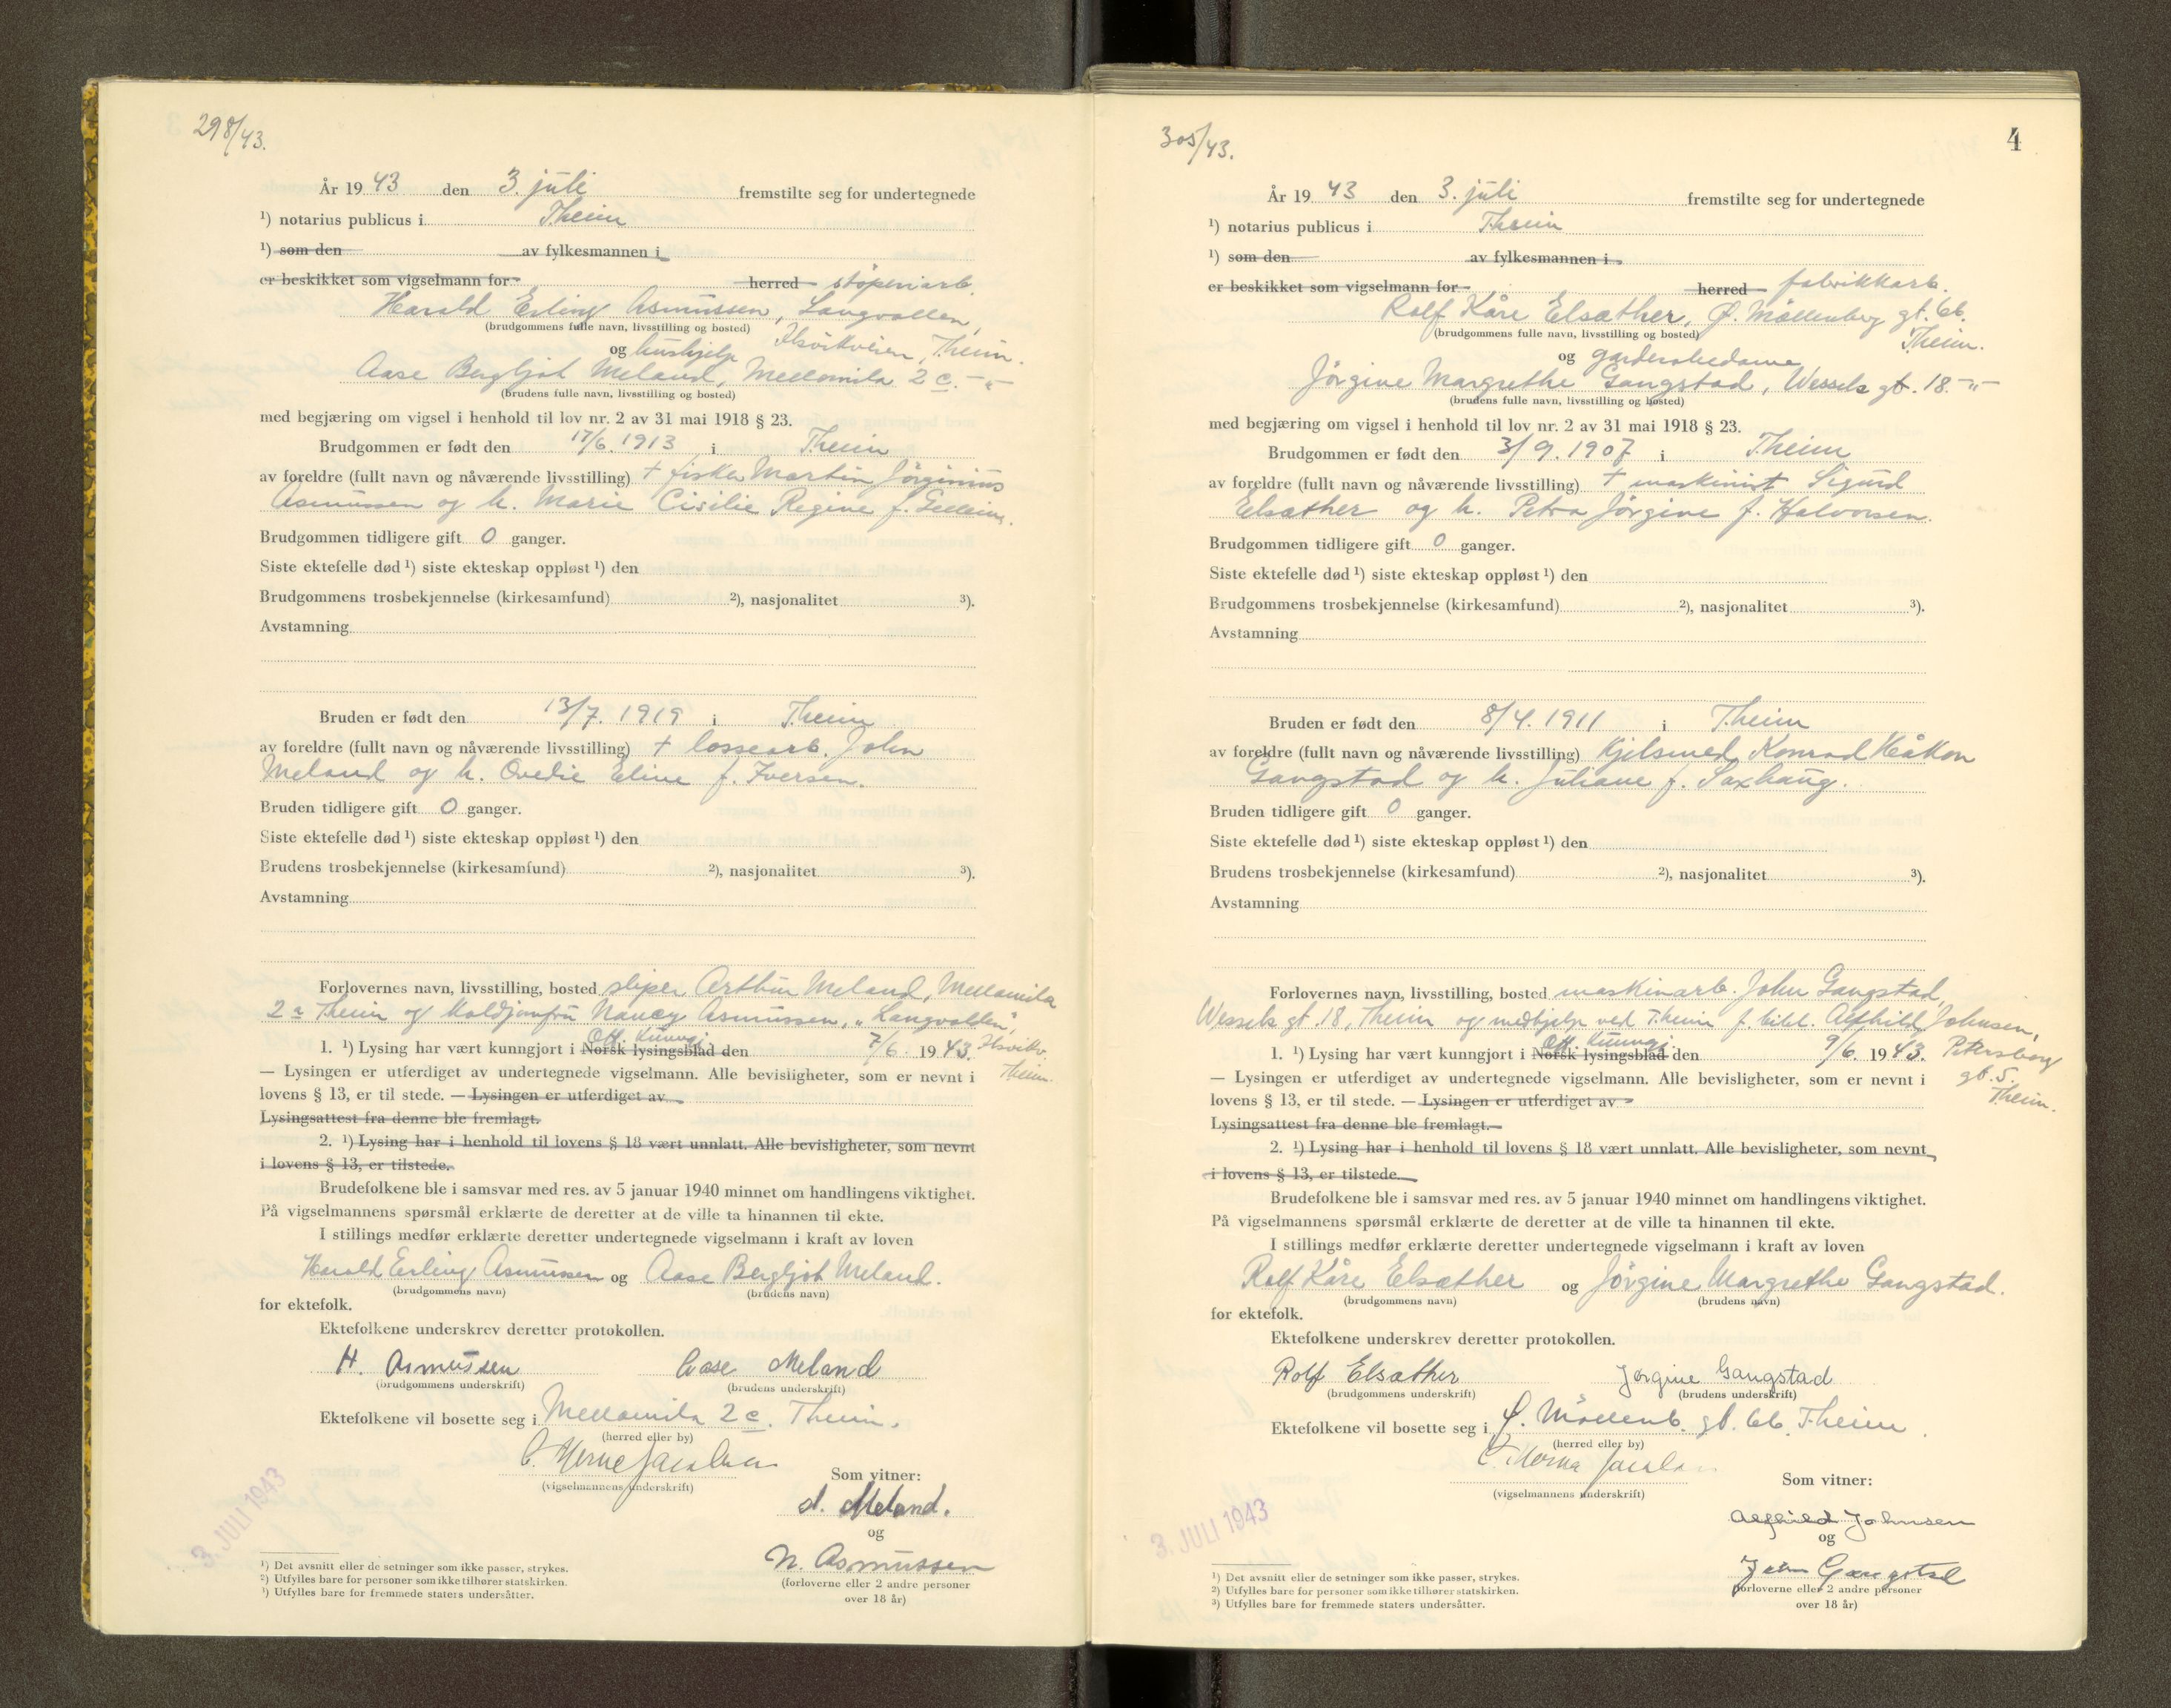 298/43.
År 19 43 den 3. juli fremstilte seg for undertegnede
¹) notarius publicus i Theim
¹) som den av fylkesmannen i
er beskikket som vigselmann for herred støperiarb.
Harald Erling Asmussen, Langvollen,
(brudgommens fulle navn, livsstilling og bosted) Ilsvikveien, Theim.
og hushjelp
Aase Bergljot Meland, Mellomila 2 c. -"-
(brudens fulle navn, livsstilling og bosted)
med begjæring om vigsel i henhold til lov nr. 2 av 31 mai 1918 § 23.
Brudgommen er født den 17/6. 1913 i Theim
av foreldre (fullt navn og nåværende livsstilling) † fisker Martin Jörginius
Asmussen og h. Marie Cisilie Regine f.
Brudgommen tidligere gift 0 ganger.
Siste ektefelle død ¹) siste ekteskap oppløst ¹) den
Brudgommens trosbekjennelse (kirkesamfund) ²), nasjonalitet ³).
Avstamning
Bruden er født den 13/7. 1919 i Theim
av foreldre (fullt navn og nåværende livsstilling) † lossearb. John
Meland og h. Ovedie Eline f. Iversen.
Bruden tidligere gift 0 ganger.
Siste ektefelle død ¹) siste ekteskap oppløst ¹) den
Brudens trosbekjennelse (kirkesamfund) ²), nasjonalitet ³).
Avstamning
Forlovernes navn, livsstilling, bosted sliper Arthur Meland, Mellomila
2 c Theim og Koldjomfru Nancy Asmussen, "Langvollen",
Off. Kunngj.
1. ¹) Lysing har vært kunngjort i Norsk lysingsblad den 7/6. 1943. Ilsvikv.
— Lysingen er utferdiget av undertegnede vigselmann. Alle bevisligheter, som er nevnt i Theim.
lovens § 13, er til stede. — Lysingen er utferdiget av
Lysingsattest fra denne ble fremlagt.
2. ¹) Lysing har i henhold til lovens § 18 vært unnlatt. Alle bevisligheter, som nevnt
i lovens § 13, er tilstede.
Brudefolkene ble i samsvar med res. av 5 januar 1940 minnet om handlingens viktighet.
På vigselmannens spørsmål erklærte de deretter at de ville ta hinannen til ekte.
I stillings medfør erklærte deretter undertegnede vigselmann i kraft av loven
Harald Erling Asmussen og Aase Bergljot Meland.
(brudgommens navn) (brudens navn)
for ektefolk.
Ektefolkene underskrev deretter protokollen.
H. Asmussen Aase Meland
(brudgommens underskrift) (brudens underskrift)
Ektefolkene vil bosette seg i Mellomila 2 c. Theim.
(herred eller by)
(vigselmannens underskrift)
Som vitner:
A. Meland.
og
N. Asmussen
(forloverne eller 2 andre personer
over 18 år)
3. JULI 1943
¹) Det avsnitt eller de setninger som ikke passer, strykes.
²) Utfylles bare for personer som ikke tilhører statskirken.
³) Utfylles bare for fremmede staters undersåtter.
305/43.
4
År 19 43 den 3. juli fremstilte seg for undertegnede
¹) notarius publicus i Theim
¹) som den av fylkesmannen i
er beskikket som vigselmann for herred fabrikkarb.
Rolf Kåre Elsæther, Ø. Möllenberg gt. 66.
(brudgommens fulle navn, livsstilling og bosted) Theim.
og garderobedame
Jörgine Margrethe Gangstad, Wessels gt. 18. -"-
(brudens fulle navn, livsstilling og bosted)
med begjæring om vigsel i henhold til lov nr. 2 av 31 mai 1918 § 23.
Brudgommen er født den 3/9. 1907 i Theim
av foreldre (fullt navn og nåværende livsstilling) † maskinist Sigurd
Elsæther og h. Petra Jörgine f. Halvorsen.
Brudgommen tidligere gift 0 ganger.
Siste ektefelle død ¹) siste ekteskap oppløst ¹) den
Brudgommens trosbekjennelse (kirkesamfund) ²), nasjonalitet ³).
Avstamning
Bruden er født den 8/4. 1911 i Theim
av foreldre (fullt navn og nåværende livsstilling) Kjelsmed Konrad Håkon
Gangstad og h. Juliane f. Saxhaug.
Bruden tidligere gift 0 ganger.
Siste ektefelle død ¹) siste ekteskap oppløst ¹) den
Brudens trosbekjennelse (kirkesamfund) ²), nasjonalitet ³).
Avstamning
Forlovernes navn, livsstilling, bosted maskinarb. John Gangstad,
Wessels gt. 18, Theim og medhjelp ved T.heim f. bibl. Alfhild Johnsen,
Off. Kunngj.
1. ¹) Lysing har vært kunngjort i Norsk lysingsblad den 9/6. 1943. Petersborg
— Lysingen er utferdiget av undertegnede vigselmann. Alle bevisligheter, som er nevnt i gt. 5.
lovens § 13, er til stede. — Lysingen er utferdiget av Theim.
Lysingsattest fra denne ble fremlagt.
2. ¹) Lysing har i henhold til lovens § 18 vært unnlatt. Alle bevisligheter, som nevnt
i lovens § 13, er tilstede.
Brudefolkene ble i samsvar med res. av 5 januar 1940 minnet om handlingens viktighet.
På vigselmannens spørsmål erklærte de deretter at de ville ta hinannen til ekte.
I stillings medfør erklærte deretter undertegnede vigselmann i kraft av loven
Rolf Kåre Elsæther og Jörgine Margrethe Gangstad.
(brudgommens navn) (brudens navn)
for ektefolk.
Ektefolkene underskrev deretter protokollen.
Rolf Elsæther Jørgine Gangstad
(brudgommens underskrift) (brudens underskrift)
Ektefolkene vil bosette seg i Ø. Möllenb. gt. 66. Theim.
(herred eller by)
(vigselmannens underskrift)
Som vitner:
Alfhild Johnsen
og
John Gangstad
(forloverne eller 2 andre personer
over 18 år)
3. JULI 1943
¹) Det avsnitt eller de setninger som ikke passer, strykes.
²) Utfylles bare for personer som ikke tilhører statskirken.
³) Utfylles bare for fremmede staters undersåtter.